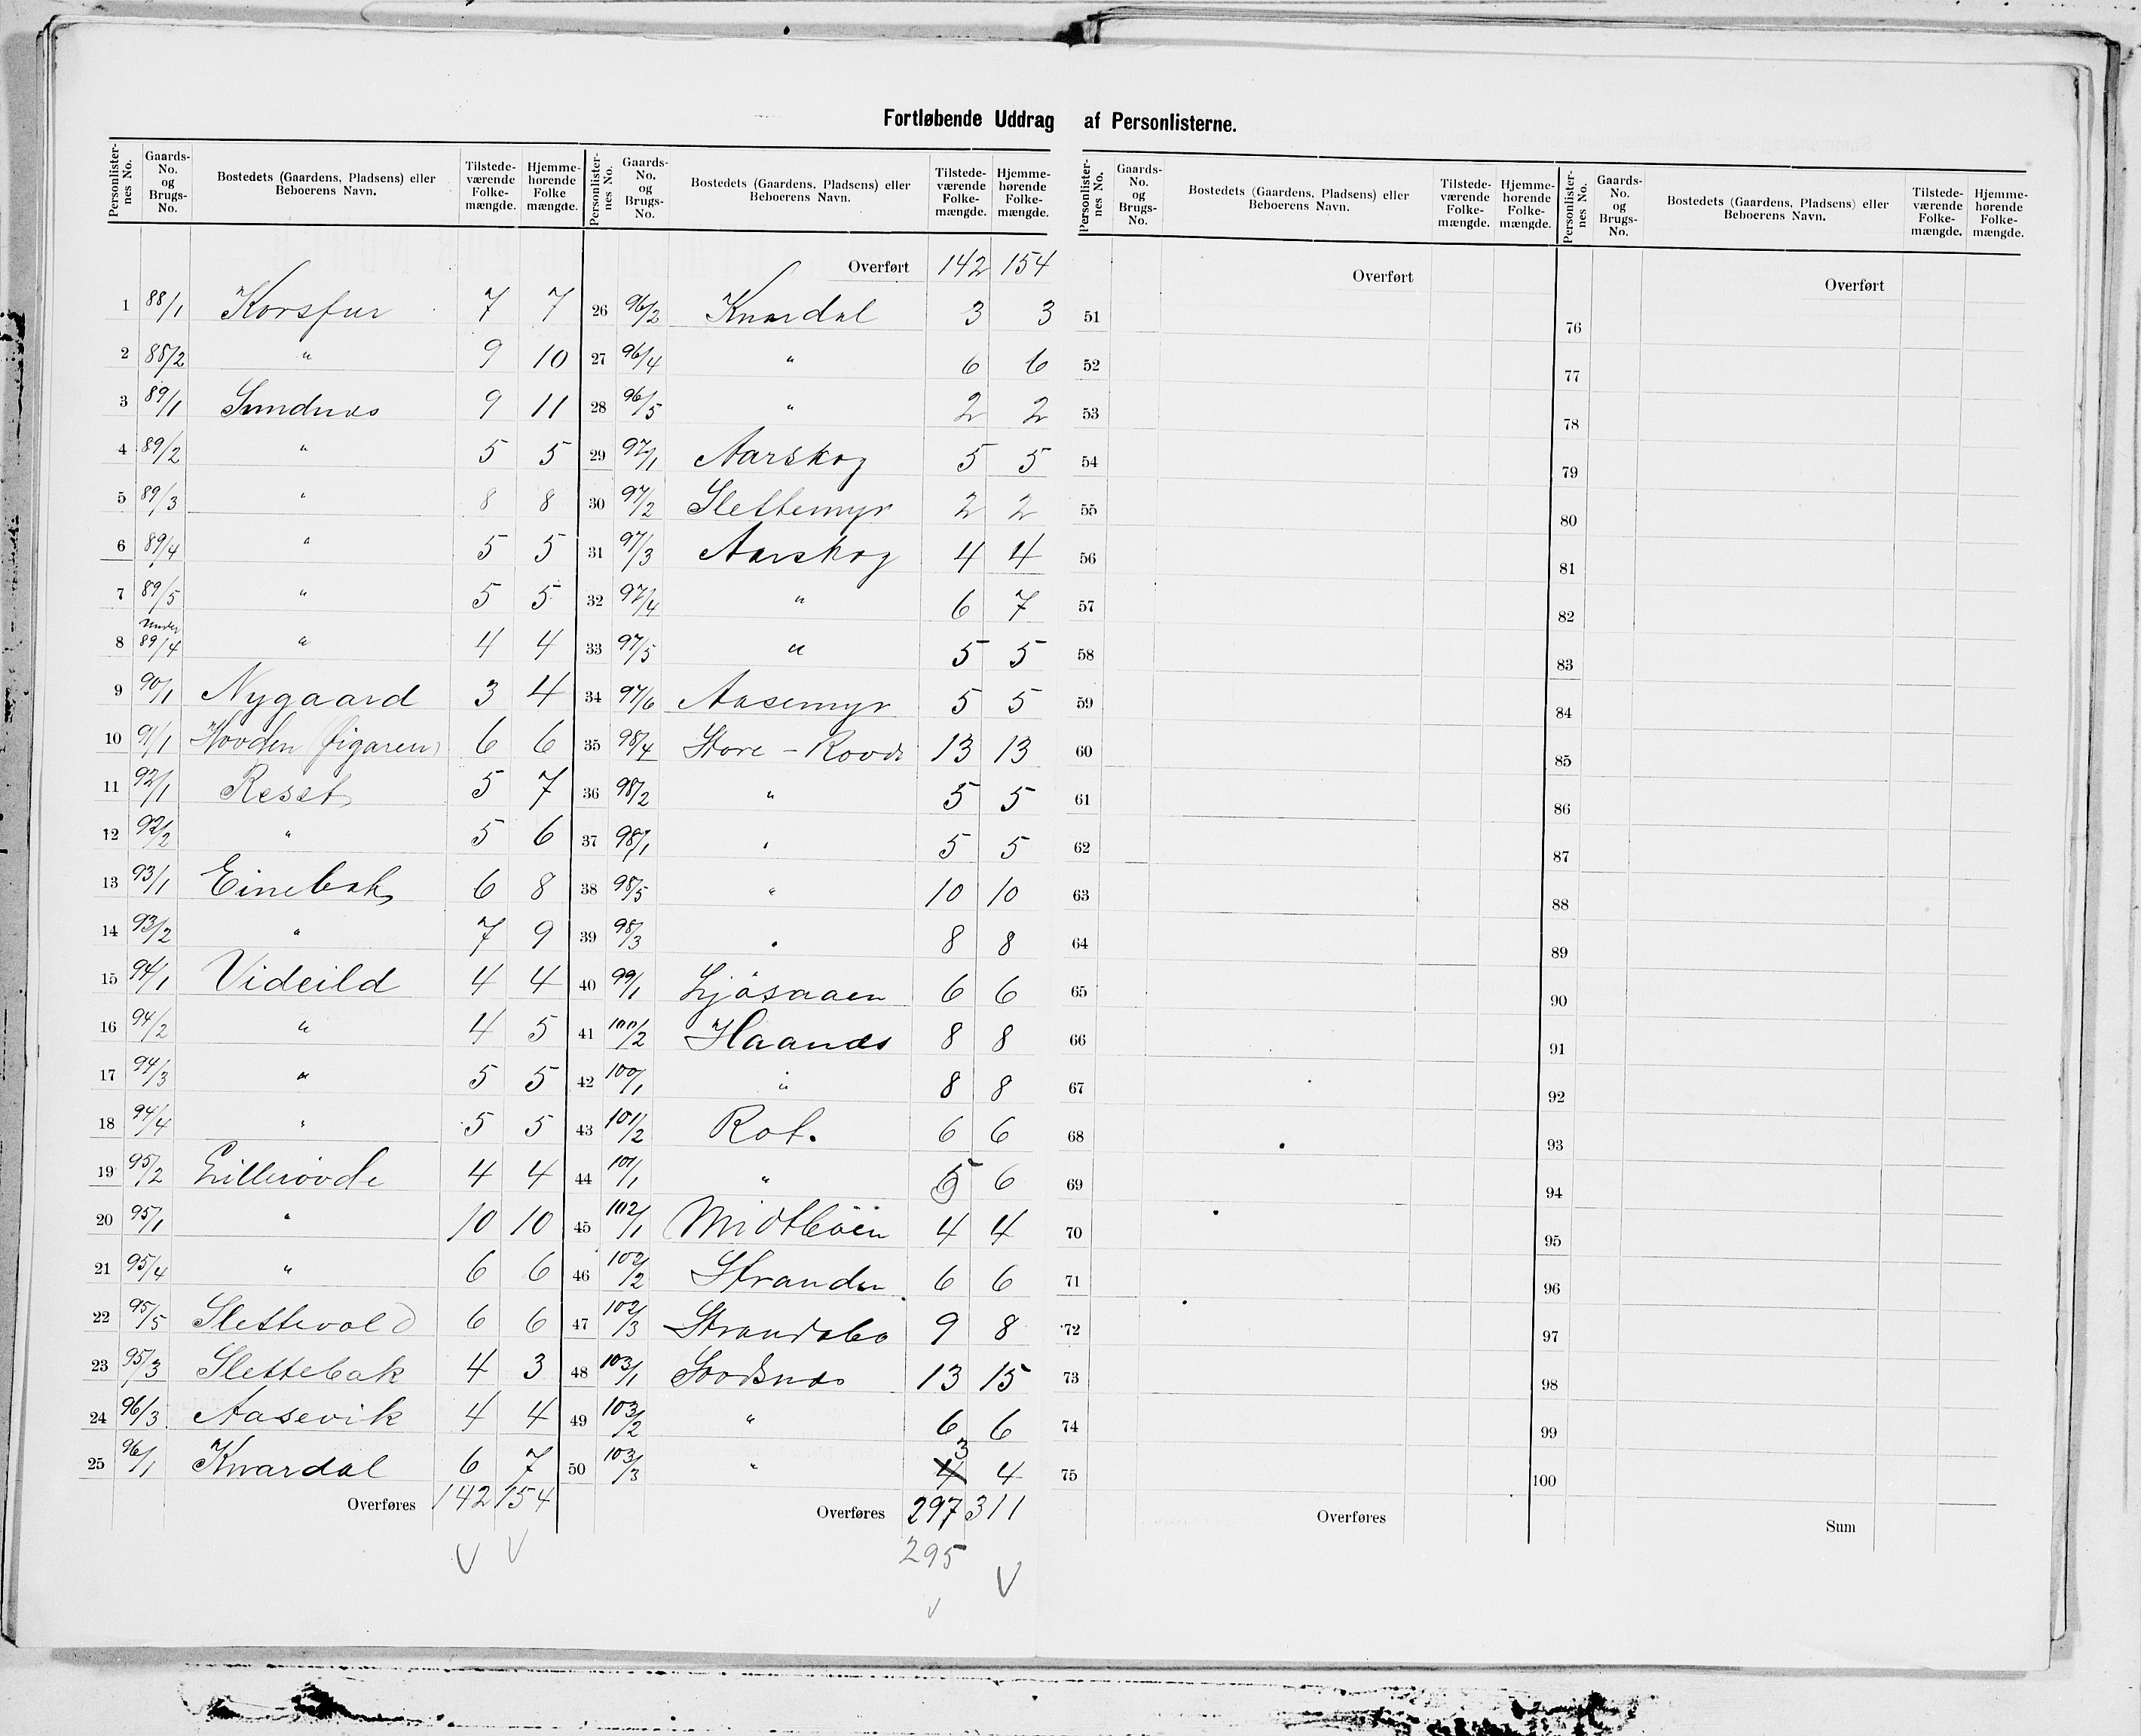 Fortløbende Uddrag af Personlisterne.
Personlisternes No. | Gaards-No. og Brugs-No. | Bostedets (Gaardens, Pladsens) eller Beboerens Navn. | Tilstedeværende Folkemængde. | Hjemmehørende Folkemængde.
1 88/1 Korsfur 7 7
2 88/2 " 9 10
3 89/1 Sundnæs 9 11
4 89/2 " 5 5
5 89/3 " 8 8
6 89/4 " 5 5
7 89/5 " 5 5
8 Under 89/4 " 4 4
9 90/1 Nygaard 3 4
10 91/1 Hovden (figaren) 6 6
11 92/1 Reset 5 7
12 92/2 " 5 6
13 93/1 Einebak 6 8
14 93/2 " 7 9
15 94/1 Videild 4 4
16 94/2 " 4 5
17 94/3 " 5 5
18 94/4 " 5 5
19 95/2 Lillerövde 4 4
20 95/1 " 10 10
21 95/4 " 6 6
22 95/5 Slettevold 6 6
23 95/3 Slettebak 4 3
24 96/3 Aasevik 4 4
25 96/1 Kvardal 6 7
Overføres 142 154
Personlisternes No. | Gaards-No. og Brugs-No. | Bostedets (Gaardens, Pladsens) eller Beboerens Navn. | Tilstedeværende Folkemængde. | Hjemmehørende Folkemængde.
Overført 142 154
26 96/2 Kvardal 3 3
27 96/4 " 6 6
28 96/5 " 2 2
29 97/1 Aarskog 5 5
30 97/2 Slettemyr 2 2
31 97/3 Aarskog 4 4
32 97/4 " 6 7
33 97/5 " 5 5
34 97/6 Aasemyr 5 5
35 98/4 Store-Rovde 13 13
36 98/2 " 5 5
37 98/1 " 5 5
38 98/5 " 10 10
39 98/3 " 8 8
40 99/1 Ljösaaen 6 6
41 100/2 Haanæs 8 8
42 100/1 " 8 8
43 101/2 Rot. 6 6
44 101/1 " 5 6
45 102/1 Midtböen 4 4
46 102/2 Stranden 6 6
47 102/3 Strandabø 9 8
48 103/1 13 15
49 103/2 " 6 6
50 103/3 " 4 3 4
Overføres 297 311
295
Personlisternes No. | Gaards-No. og Brugs-No. | Bostedets (Gaardens, Pladsens) eller Beboerens Navn. | Tilstedeværende Folkemængde. | Hjemmehørende Folkemængde.
Overført
51
52
53
54
55
56
57
58
59
60
61
62
63
64
65
66
67
68
69
70
71
72
73
74
75
Overføres
Personlisternes No. | Gaards-No. og Brugs-No. | Bostedets (Gaardens, Pladsens) eller Beboerens Navn. | Tilstedeværende Folkemængde. | Hjemmehørende Folkemængde.
Overført
76
77
78
79
80
81
82
83
84
85
86
87
88
89
90
91
92
93
94
95
96
97
98
99
100
Sum